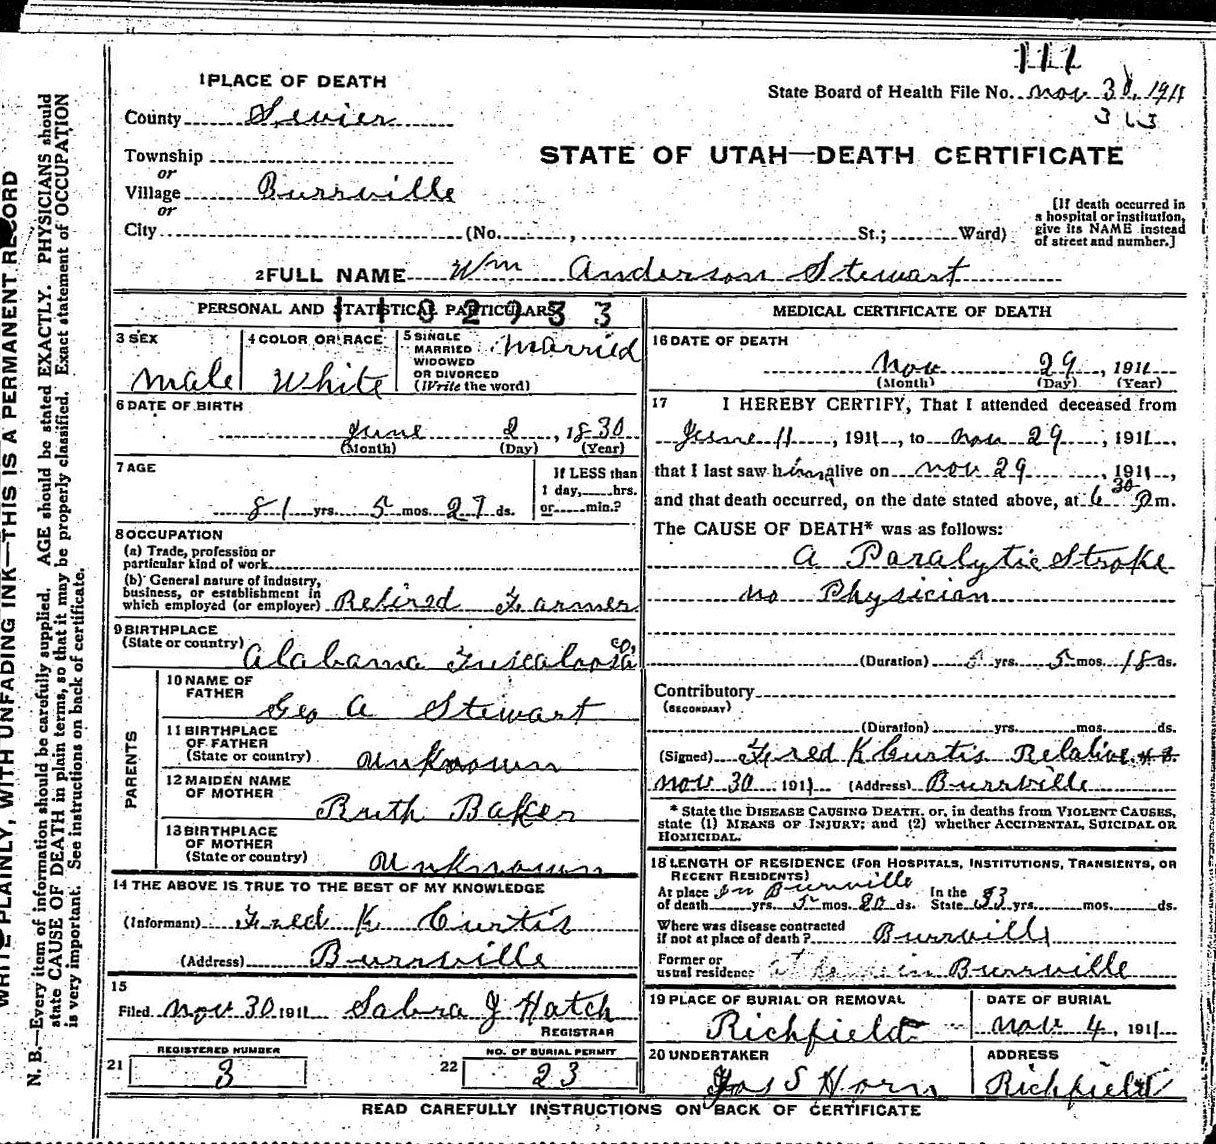 111
1 PLACE OF DEATH
State Board of Health File No. Nov 30, 1911
County Sevier
STATE OF UTAH—DEATH CERTIFICATE
Township
or
Village Burrville
or
City (No. , St.; Ward)
[If death occurred in a hospital or institution, give its NAME instead of street and number.]
2 FULL NAME Wm Anderson Stewart
PERSONAL AND STATISTICAL PARTICULARS
3 SEX Male
4 COLOR OR RACE White
5 SINGLE MARRIED WIDOWED OR DIVORCED (Write the word) Married
6 DATE OF BIRTH
June 2, 1830
(Month) (Day) (Year)
7 AGE
81 yrs. 5 mos. 27 ds.
If LESS than 1 day, hrs. or min.?
8 OCCUPATION
(a) Trade, profession or particular kind of work
(b) General nature of industry, business, or establishment in which employed (or employer) Retired Farmer
9 BIRTHPLACE
(State or country) Alabama Tuscaloosa Co.
PARENTS
10 NAME OF FATHER
Geo A Stewart
11 BIRTHPLACE OF FATHER
(State or country) unknown
12 MAIDEN NAME OF MOTHER
Ruth Baker
13 BIRTHPLACE OF MOTHER
(State or country) unknown
14 THE ABOVE IS TRUE TO THE BEST OF MY KNOWLEDGE
(Informant) Fred K. Curtis
(Address) Burrville
15
Filed Nov 30 1911 Sabra J Hatch
REGISTRAR
21 REGISTERED NUMBER 3
22 NO. OF BURIAL PERMIT 23
MEDICAL CERTIFICATE OF DEATH
16 DATE OF DEATH
Nov 29, 1911
(Month) (Day) (Year)
17 I HEREBY CERTIFY, That I attended deceased from
June 11, 1911, to Nov 29, 1911,
that I last saw him alive on Nov 29, 1911,
and that death occurred, on the date stated above, at 6 30 P m.
The CAUSE OF DEATH* was as follows:
A Paralytic Stroke
no Physician
(Duration) yrs. 5 mos. 18 ds.
Contributory
(SECONDARY)
(Duration) yrs. mos. ds.
(Signed) Fred K Curtis Relative
Nov 30 1911 (Address) Burrville
* State the DISEASE CAUSING DEATH, or, in deaths from VIOLENT CAUSES,
state (1) MEANS OF INJURY; and (2) whether ACCIDENTAL, SUICIDAL OR
HOMICIDAL.
18 LENGTH OF RESIDENCE (FOR HOSPITALS, INSTITUTIONS, TRANSIENTS, OR
RECENT RESIDENTS)
At place of death In Burrville yrs. 5 mos. 20 ds. In the State 33 yrs. mos. ds.
Where was disease contracted if not at place of death? Burrville
Former or usual residence Burrville
19 PLACE OF BURIAL OR REMOVAL
Richfield
DATE OF BURIAL
Nov 4, 1911
20 UNDERTAKER
Jas S Horn
ADDRESS
Richfield
READ CAREFULLY INSTRUCTIONS ON BACK OF CERTIFICATE
WRITE PLAINLY, WITH UNFADING INK—THIS IS A PERMANENT RECORD
N. B.—Every item of information should be carefully supplied. AGE should be stated EXACTLY. PHYSICIANS should
state CAUSE OF DEATH in plain terms, so that it may be properly classified. Exact statement of OCCUPATION
is very important. See instructions on back of certificate.